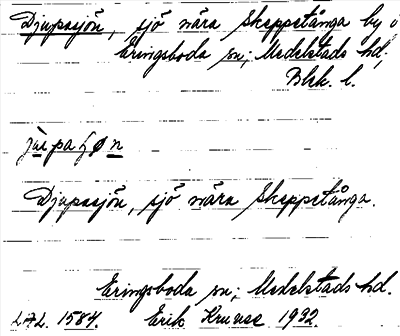 Djupasjön, sjö nära Skeppstånga by i
Eringsboda sn; Medelstads hd.
Blek. l.
Djupasjön, sjö nära Skeppstånga.
Eringsboda sn; Medelstads hd.
LAL. 1584. Erik Kruuse 1932